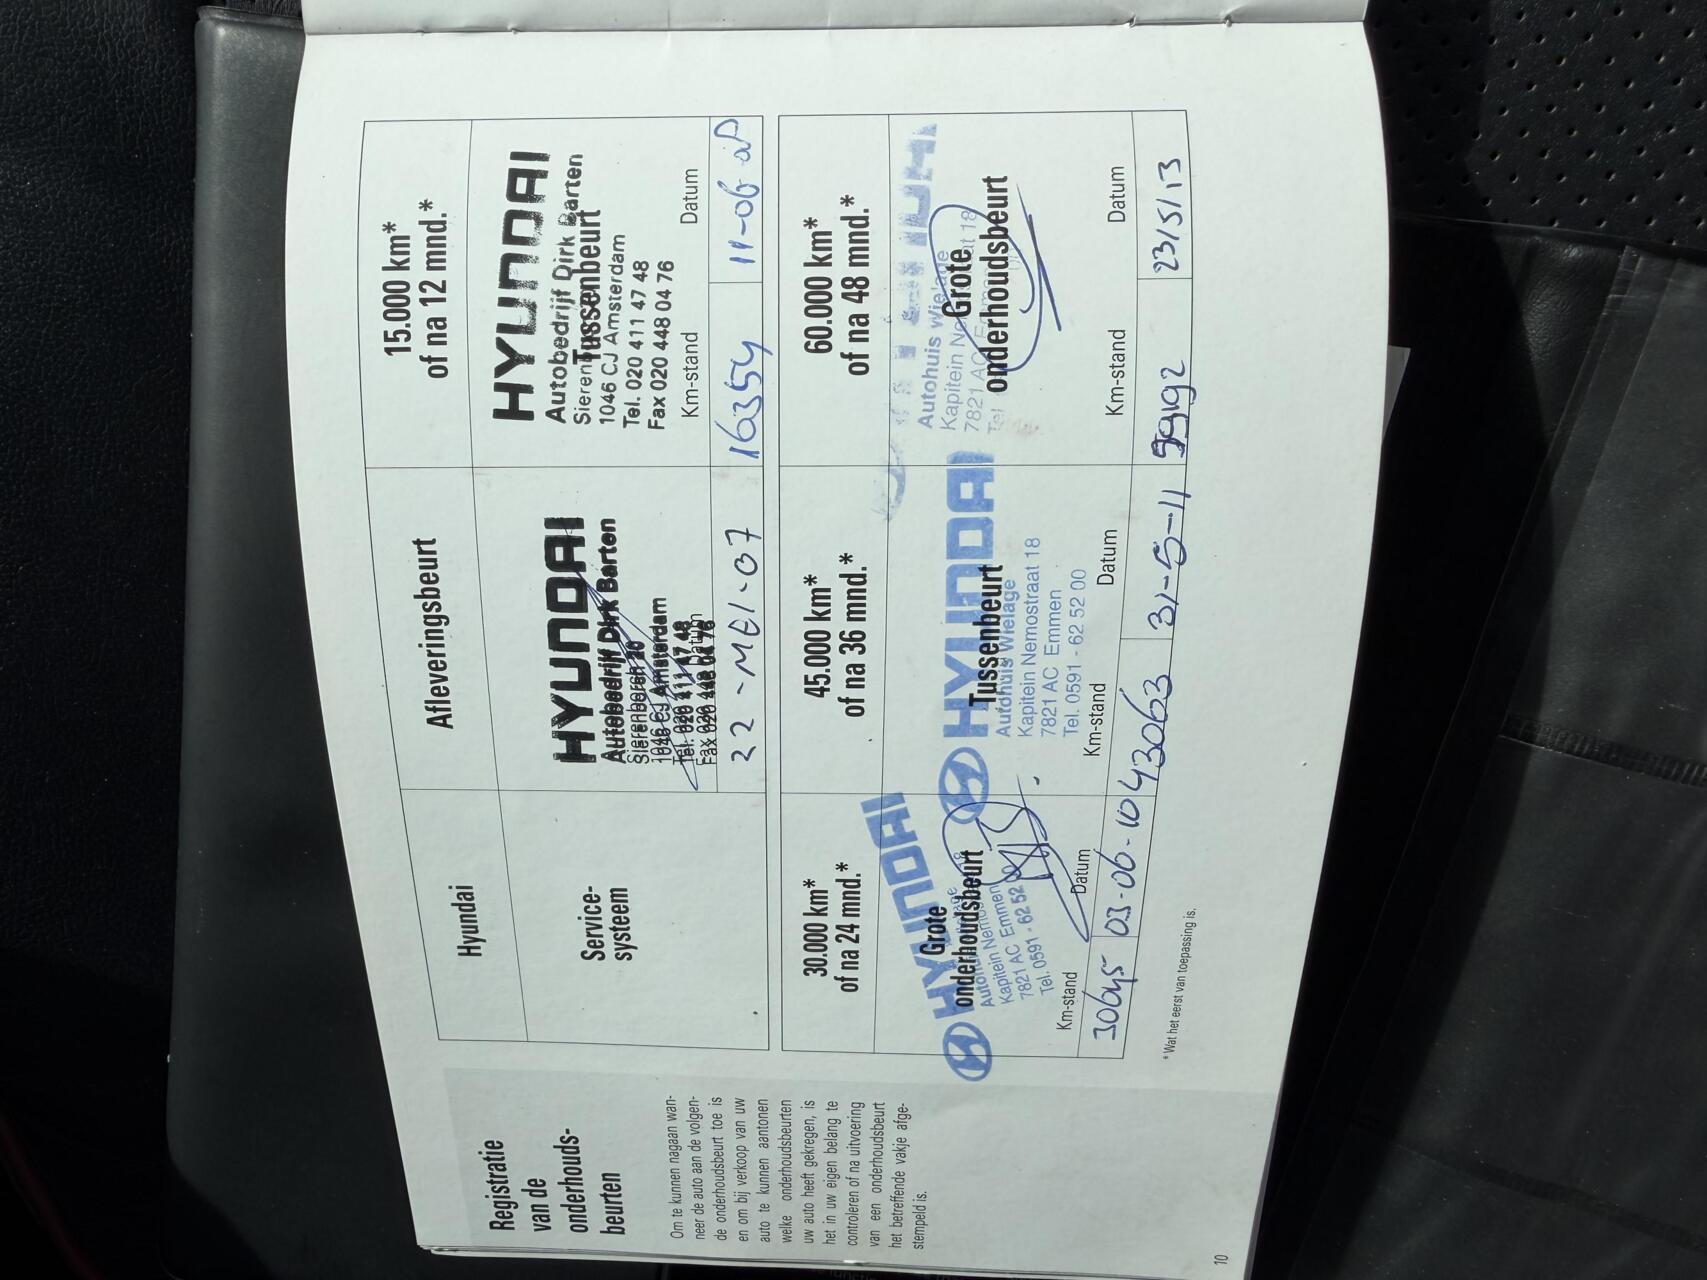 Registratie
van de
onderhouds-
beurten
Om te kunnen nagaan wan-
neer de auto aan de volgen-
de onderhoudsbeurt toe is
en om bij verkoop van uw
auto te kunnen aantonen
welke onderhoudsbeurten
uw auto heeft gekregen, is
het in uw eigen belang te
controleren of na uitvoering
van een onderhoudsbeurt
het betreffende vakje afge-
stempeld is.
Hyundai
Service-
systeem
Afleveringsbeurt
HYUNDAI
Autobedrijf Dirk Barten
1046 CJ Amsterdam
Tel. 020 411 47 48
Fax 020 448 04 76
Datum
22-MEI-07
15.000 km*
of na 12 mnd.*
HYUNDAI
Autobedrijf Dirk Barten
Tussenbeurt
1046 CJ Amsterdam
Tel. 020 411 47 48
Fax 020 448 04 76
Km-stand
Datum
16354
11-06-
30.000 km*
of na 24 mnd.*
HYUNDAI
Grote
onderhoudsbeurt
Kapitein Nemo
7821 AC Emmen
Tel. 0591 - 62 52
Km-stand
Datum
30645
03-06-10
45.000 km*
of na 36 mnd.*
HYUNDAI
Tussenbeurt
Autohuis Wielage
Kapitein Nemostraat 18
7821 AC Emmen
Tel. 0591 - 62 52 00
Km-stand
Datum
43063
31-5-11
60.000 km*
of na 48 mnd.*
Autohuis Wielage
Grote
Kapitein Nemostraat 18
onderhoudsbeurt
7821 AC
Tel
Km-stand
Datum
23/5/13
* Wat het eerst van toepassing is.
10